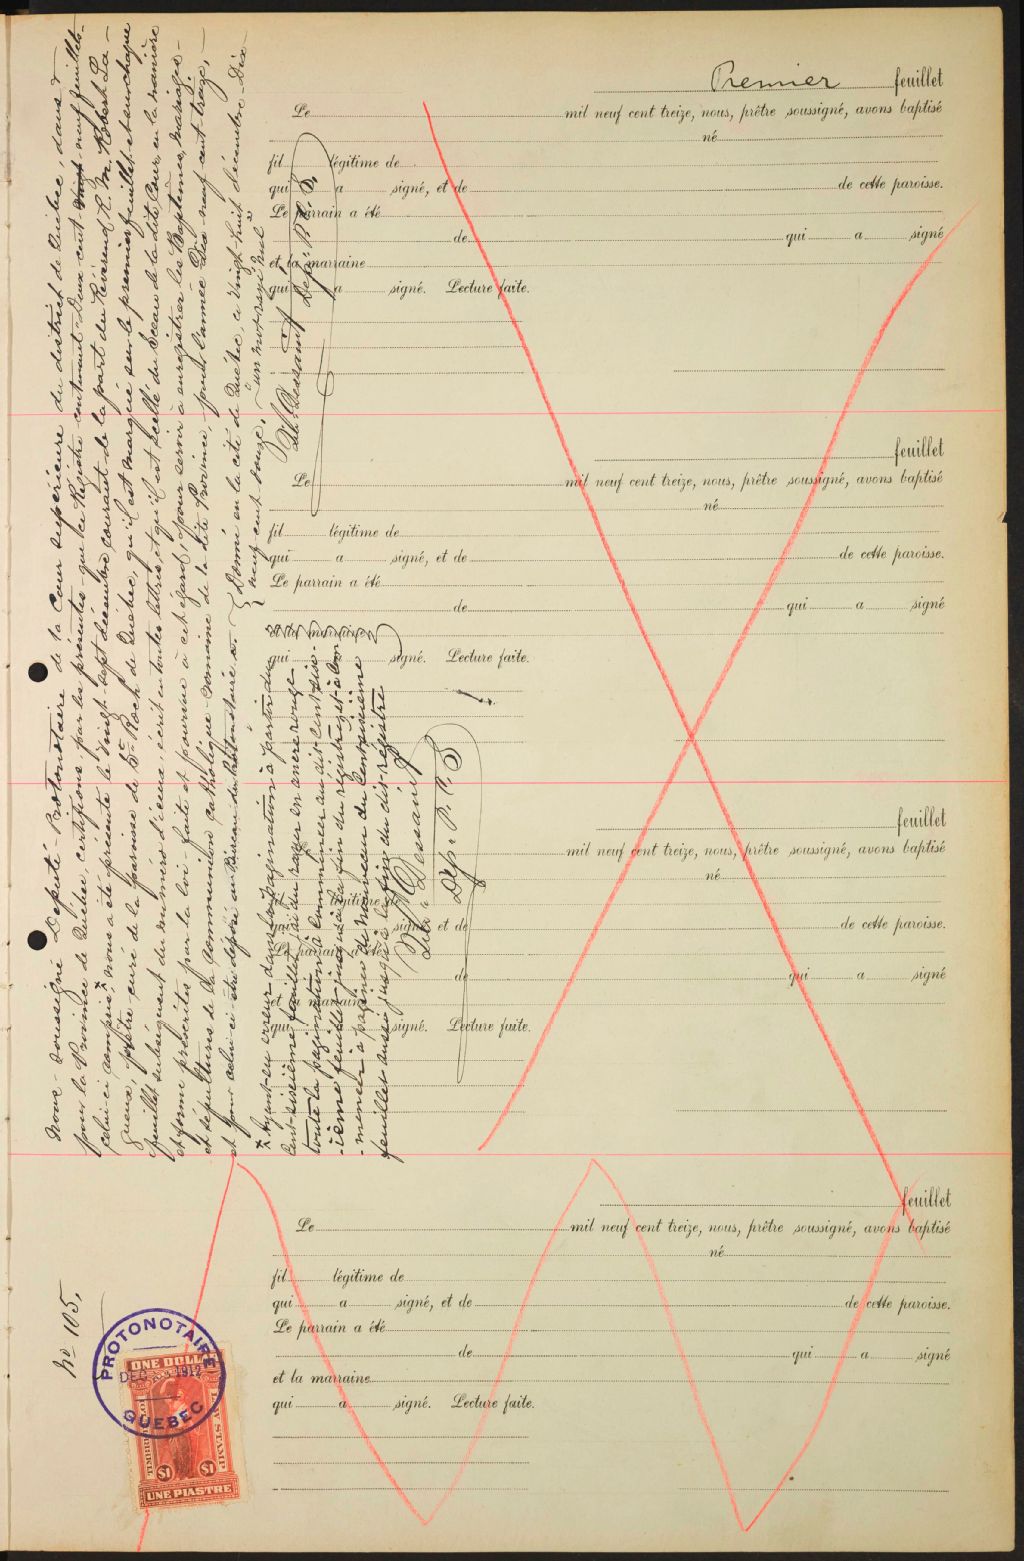 Premier feuillet
Le mil neuf cent treize, nous, prêtre soussigné, avons baptisé
né
fil légitime de
qui a signé, et de de cette paroisse.
Le parrain a été
de qui a signé
et la marraine
qui a signé. Lecture faite.
feuillet
Le mil neuf cent treize, nous, prêtre soussigné, avons baptisé
né
fil légitime de
qui a signé, et de de cette paroisse.
Le parrain a été
de qui a signé
et la marraine
qui signé. Lecture faite.
feuillet
mil neuf cent treize, nous, prêtre soussigné, avons baptisé
né
légitime de
qui signé et de de cette paroisse.
Le parrain a été
de qui a signé
et la marraine
qui signé. Lecture faite.
feuillet
Le mil neuf cent treize, nous, prêtre soussigné, avons baptisé
né
fil légitime de
qui a signé, et de de cette paroisse.
Le parrain a été
de qui a signé
et la marraine
qui a signé. Lecture faite.
Nous soussigné Député-Protonotaire de la Cour supérieure du district de Québec, dans &
pour la Province de Québec, certifions par les présentes que ce Régistre contenant Deux cent neuf feuillets
celui-ci compris, nous a été présenté le Vingt-sept décembre courant de la part du Révérend R. M. Robert La-
gueux, prêtre-curé de la paroisse de St Roch de Québec, qu'il est marqué sur le premier feuillet et sur chaque
feuillet subséquent du numéro d'iceux, écrit en toutes lettres, et qu'il est scellé du sceau de la dite Cour, en la manière
et forme prescrites par la loi faite et pourvue à cet égard, pour servir à enregistrer les Baptêmes, mariages
et sépultures de la communion catholique-romaine de la dite Province, pour l'année Dix-neuf cent treize,
et pour celui-ci être déposé au Bureau du Protonotaire.
Donné en la cité de Québec, ce Vingt-huit décembre Dix-
neuf cent douze, un mot rayé nul
Dessaint
Dép. P. C. S.
Ayant eu erreur dans la pagination à partir du
Cent-sixième feuillet, j'ai du rayer en encre rouge
toute la pagination à commencer au dit cent-six-
ième feuillet jusqu'à la fin du régistre, et à com-
-mencer à paginer de nouveau du Cent-sixième
feuillet aussi jusqu'à la fin du dit régistre
Dessaint
Dép. P. C. S
No 105.
PROTONOTAIRE
DEC 1912
QUEBEC
ONE DOLLAR
LAW STAMP
$1 $1
UNE PIASTRE